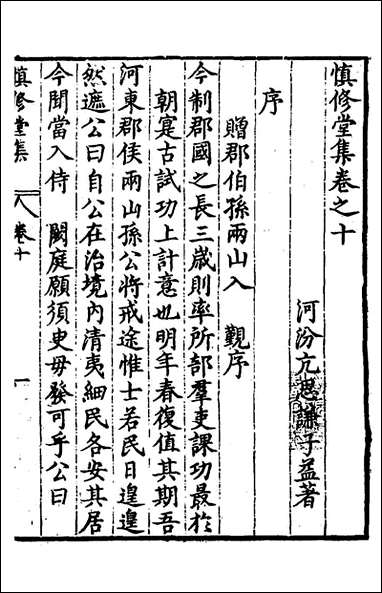 慎修堂集卷之十
河汾亢思謙子益著
序
贈郡伯孫兩山入　覲序
今制郡國之長三歲則率所部羣吏課功最於
朝寔古試功上計意也明年春復值其期吾
河東郡侯兩山孫公將戒途惟士若民日遑遑
然遮公曰自公在治境內清夷細民各安其居
今聞當入侍　闕庭願須臾毋發可乎公曰
慎修堂集
卷十
一